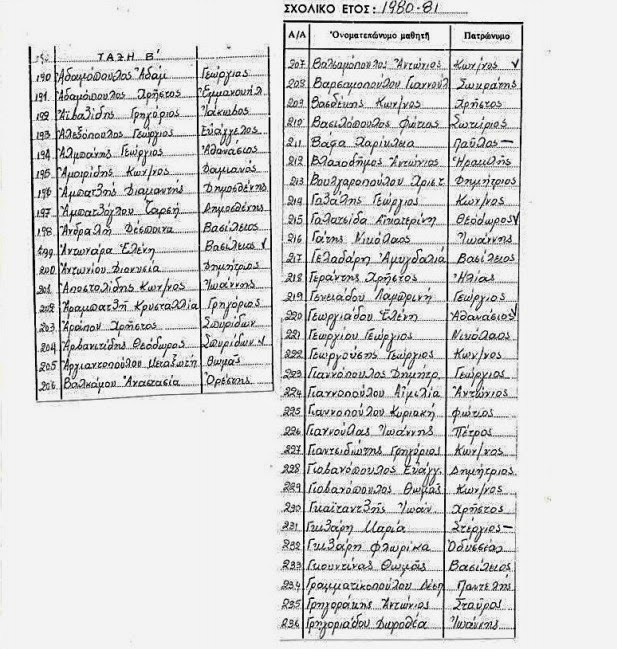 ΤΑΞΗ Β'
190 Ἀδαμόπουλος Ἀδάμ Γεώργιος
191 Ἀδαμόπουλος Χρῆστος Ἐμμανουήλ
192 Ἀϊβαλίδης Γρηγόριος Ἰάκωβος
193 Ἀλεξόπουλος Γεώργιος Εὐάγγελος
194 Ἀλμπάνης Γεώργιος Ἀθανάσιος
195 Ἀμοιρίδης Κων/νος Δαμιανός
196 Ἀμπατζῆς Διαμαντῆς Δημοσθένης
197 Ἀμπατζόγλου Ταρσή Δημοσθένης
198 Ἀνδραλῆ Δέσποινα Βασίλειος
199 Ἀντωνάρα Ἑλένη Βασίλειος √
200 Ἀντωνίου Διονυσία Δημήτριος
201 Ἀποστολίδης Κων/νος Ἰωάννης
202 Ἀραμπατζῆ Κρυσταλλία Γρηγόριος
203 Ἀράπου Χρῆστος Σπυρίδων
204 Ἀρβανιτίδης Θεόδωρος Σπυρίδων √
205 Ἀρχιαντοπούλου Μεταξωτή Θωμᾶς
206 Βαλκάμου Ἀναστασία Ὀρέστης
ΣΧΟΛΙΚΟ ΕΤΟΣ: 1980-81
Α/Α Ὀνοματεπώνυμο μαθητῆ Πατρώνυμο
207 Βαλσαμόπουλος Ἀντώνιος Κων/νος √
208 Βαρσαμοπούλου Γιαννούλ Σωκράτης
209 Βασδέκης Κων/νος Χρῆστος
210 Βασιλόπουλος Φώτιος Σωτήριος
211 Βάφα Χαρίκλεια Παῦλος —
212 Βλαχοδῆμος Ἀντώνιος Ἡρακλῆς
213 Βουλγαροπούλου Χριστ. Δημήτριος
214 Γαλάνης Γεώργιος Κων/νος
215 Γαλατσίδα Αἰκατερίνη Θεόδωρος √
216 Γάτης Νικόλαος Ἰωάννης
217 Γελαδάρη Ἀμυγδαλιά Βασίλειος
218 Γεράντης Χρῆστος Ἠλίας
219 Γενειάδου Λαμπρινή Γεώργιος
220 Γεωργιάδου Ἑλένη Ἀθανάσιος √
221 Γεωργίου Γεώργιος Νικόλαος
222 Γεωργούσης Γεώργιος Κων/νος
223 Γιαννόπουλος Δημήτρ. Γεώργιος
224 Γιαννοπούλου Αἰμιλία Ἀντώνιος
225 Γιαννοπούλου Κυριακή Φώτιος
226 Γιαννούλας Ἰωάννης Πέτρος
227 Γιαντσιδιώτης Γρηγόριος Κων/νος
228 Γιοβανόπουλος Εὐάγγ. Δημήτριος
229 Γιοβανόπουλος Θωμᾶς Κων/νος
230 Γκαϊταντζῆς Ἰωάν. Χρῆστος
231 Γκιζάρη Μαρία Στέργιος —
232 Γκιζάρη Φλωρίκα Ὀδυσσέας
233 Γκουντίνας Θωμᾶς Βασίλειος
234 Γραμματικοπούλου Δέσπ Παντελῆς
235 Γρηγοράκης Ἀντώνιος Σταῦρος
236 Γρηγοριάδου Δωροθέα Ἰωάννης